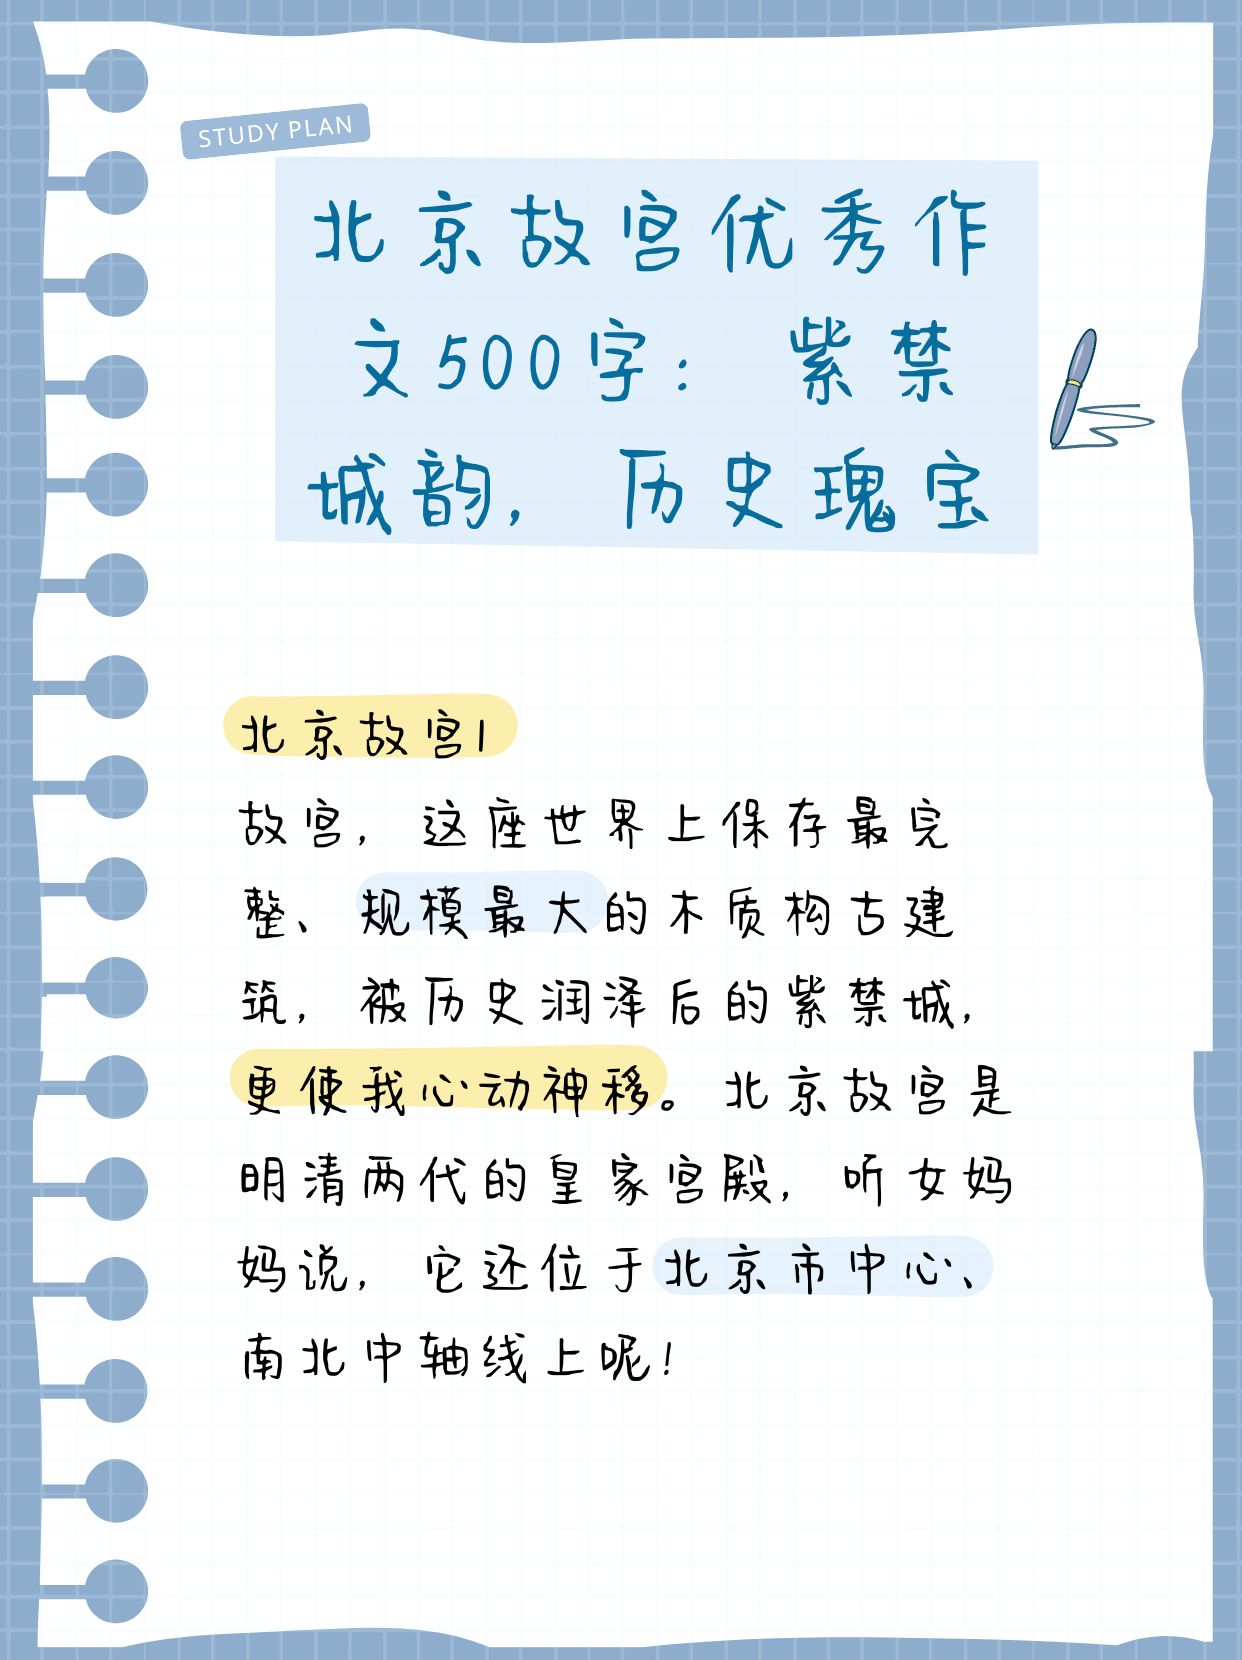 STUDY PLAN
北京故宫优秀作
文500字： 紫禁
城韵， 历史瑰宝
北京故宫1
故宫，这座世界上保存最完
整、规模最大的木质构古建
筑，被历史润泽后的紫禁城，
更使我心动神移。北京故宫是
明清两代的皇家宫殿，听女妈
妈说，它还位于北京市中心、
南北中轴线上呢！